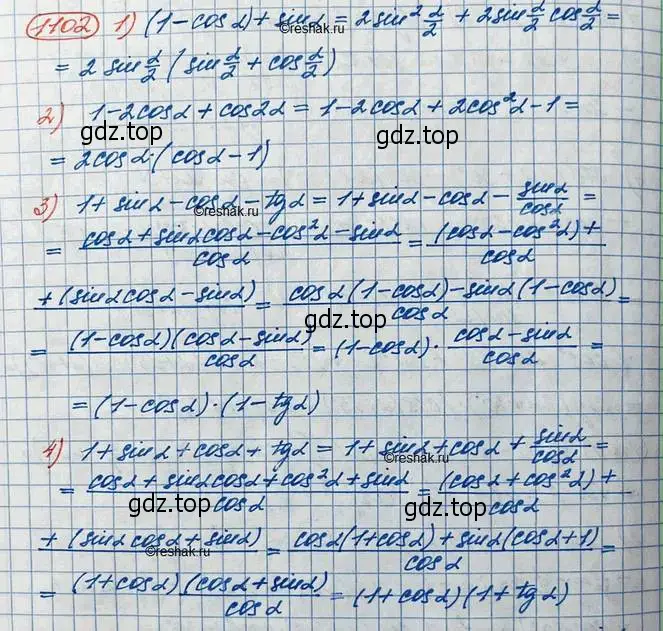 1102 1) (1-cosα)+sinα = 2sin²α/2 + 2sinα/2 cosα/2 =
= 2 sinα/2 (sinα/2 + cosα/2)
©reshak.ru
2) 1-2cosα + cos2α = 1-2cosα + 2cos²α-1 =
gdz.top gdz.top
= 2cosα·(cosα-1)
3) 1+sinα-cosα-tgα = 1+sinα-cosα- sinα/cosα =
©reshak.ru
= (cosα+sinαcosα-cos²α-sinα)/cosα = (cosα-cos²α)+/cosα
+(sinαcosα-sinα) = (cosα(1-cosα)-sinα(1-cosα))/cosα =
gdz.top
= ((1-cosα)(cosα-sinα))/cosα = (1-cosα)· (cosα-sinα)/cosα =
= (1-cosα)·(1-tgα)
4) 1+sinα+cosα+tgα = 1+sinα+cosα+ sinα/cosα =
©reshak.ru
= (cosα+sinαcosα+cos²α+sinα)/cosα = (cosα+cos²α)+/cosα
gdz.top gdz.top
+(sinαcosα+sinα) = (cosα(1+cosα)+sinα(cosα+1))/cosα =
©reshak.ru
= ((1+cosα)(cosα+sinα))/cosα = (1+cosα)(1+tgα)